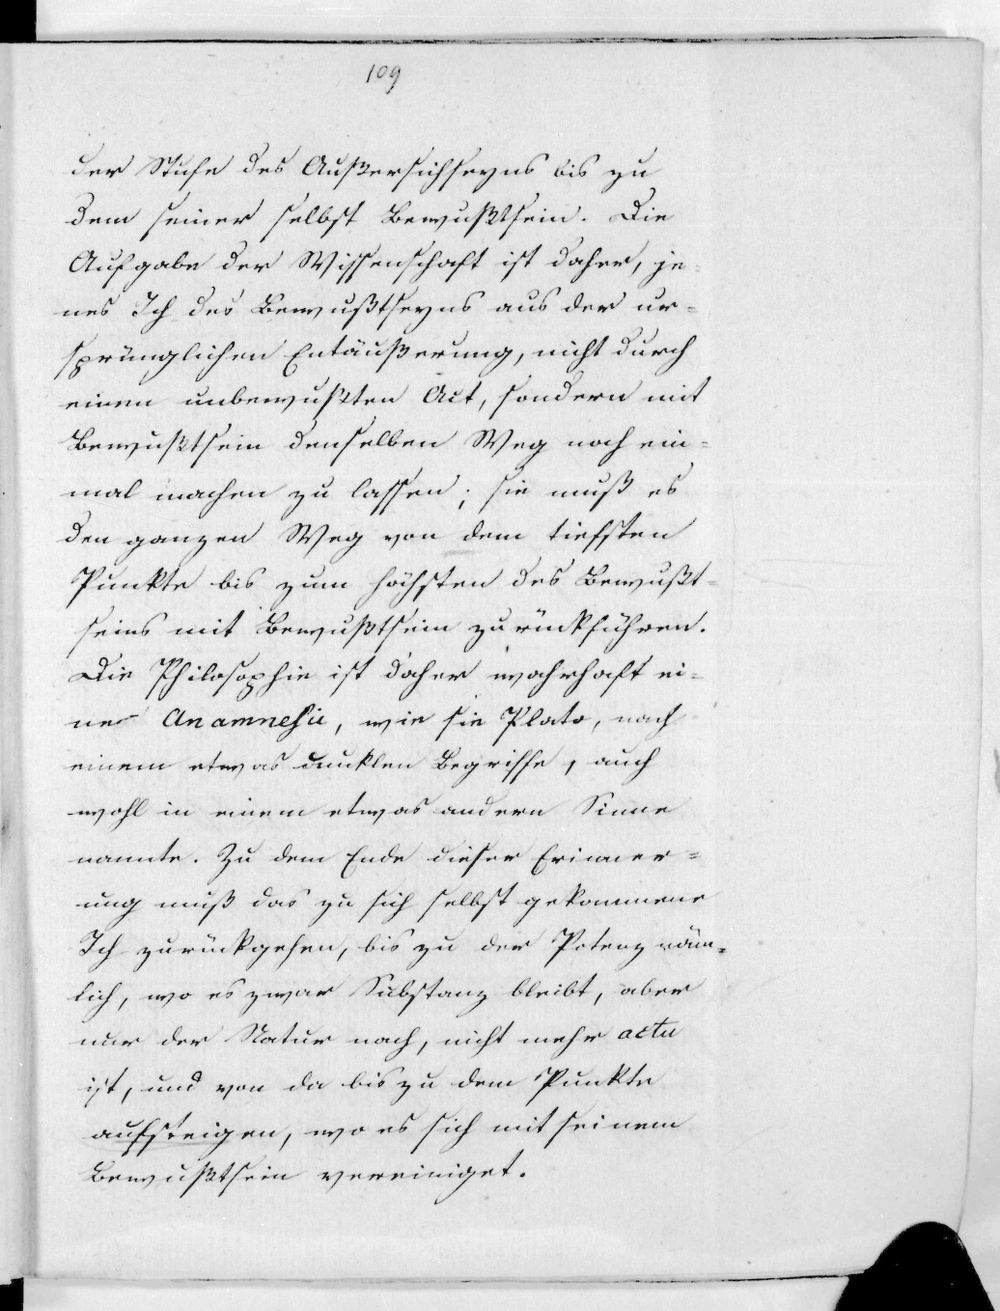 109
der Stufe des Außersichseyns bis zu
dem seiner selbst Bewußtsein. Die
Aufgabe der Wissenschaft ist daher, je-
nes Ich des Bewußtseyns aus der ur-
sprünglichen Entäußerung, nicht durch
einen unbewußten Act, sondern mit
Bewußtsein denselben Weg noch ein-
mal machen zu lassen; sie muß es
den ganzen Weg von dem tiefsten
Punkte bis zum höchsten des Bewußt-
seins mit Bewußtsein zurückführen.
Die Philosophie ist daher wahrhaft ei-
ne Anamnesie, wie sie Plato, nach
einem etwas dunklen Begriffe, auch
wohl in einem etwas andern Sinne
nannte. Zu dem Ende dieser Erinner-
ung muß das zu sich selbst gekommene
Ich zurückgehen, bis zu der Potenz näm-
lich, wo es zwar Substanz bleibt, aber
nur der Natur nach, nicht mehr actu
ist, und von da bis zu dem Punkte
aufsteigen, wo es sich mit seinem
Bewußtsein vereiniget.